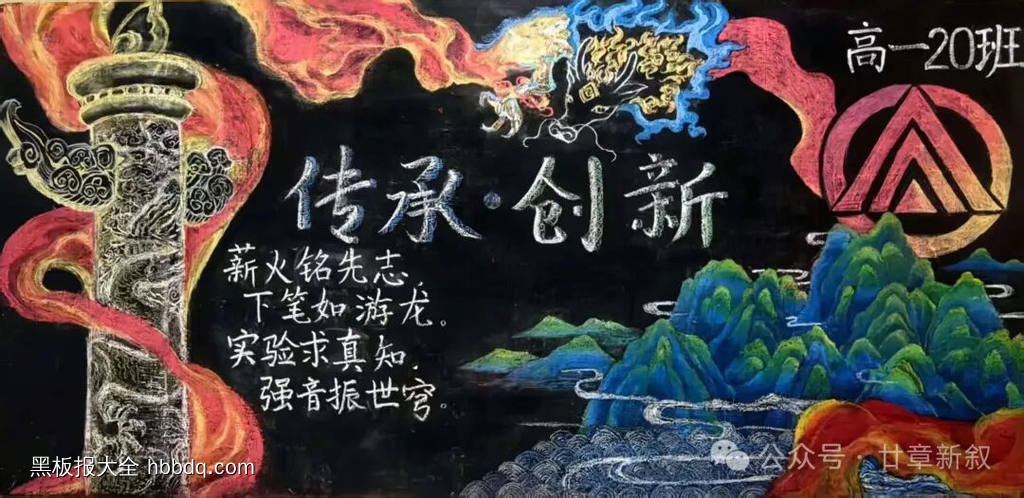 高一20班
传承·创新
薪火铭先志，
下笔如游龙。
实验求真知，
强音振世穹。
黑板报大全 hbbdq.com
公众号·廿章新叙